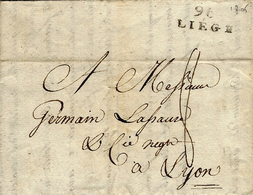 96
LIEGE
A Messieurs
Germain
& Cie negts
a Lyon